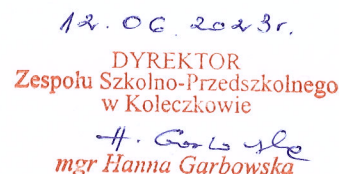 12.06.2023r.
DYREKTOR
Zespołu Szkolno-Przedszkolnego
w Koleczkowie
H. Garbowska
mgr Hanna Garbowska